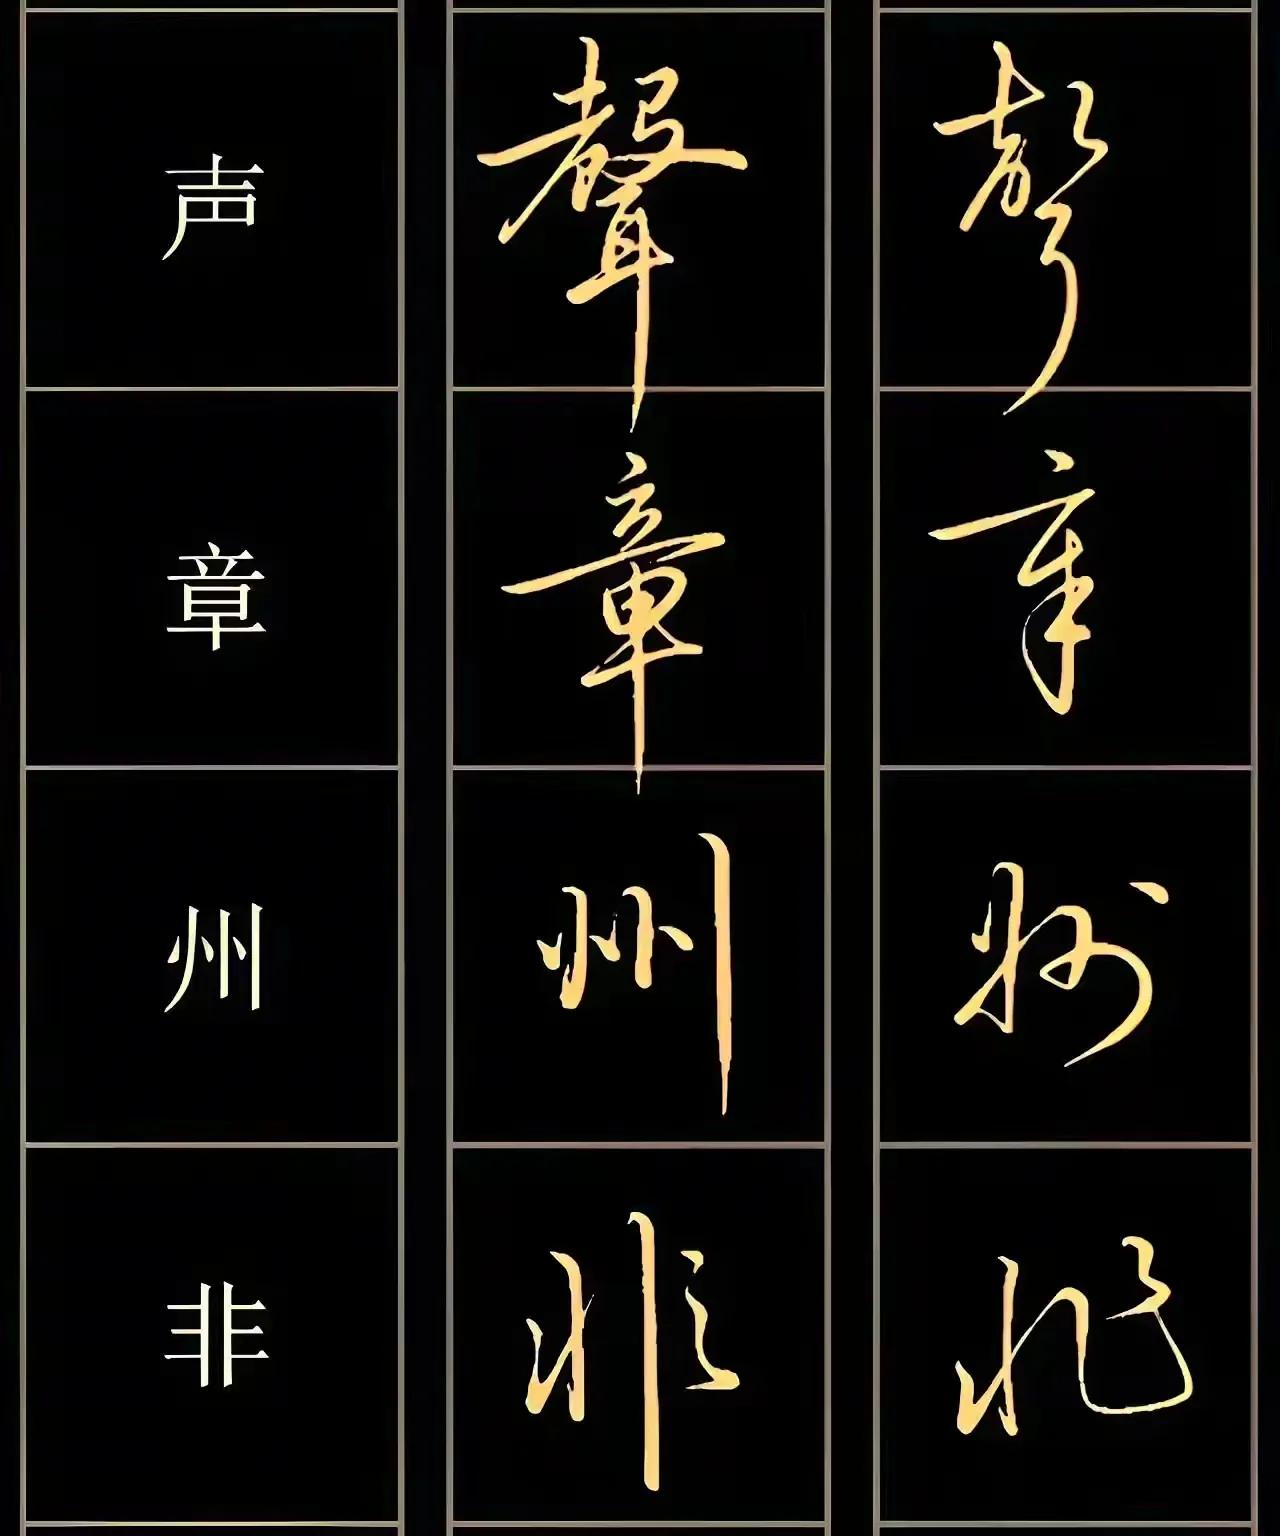 声 聲 聲
章 章 章
州 州 州
非 非 非